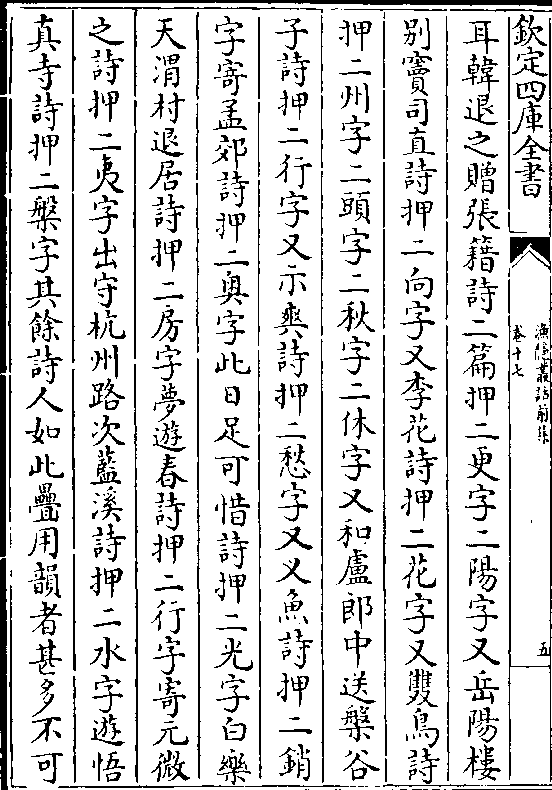 欽定四庫全書
漁隱叢話前集
卷十七
五
耳韓退之贈張籍詩二篇押二更字二陽字又岳陽樓
别竇司直詩押二向字又李花詩押二花字又雙鳥詩
押二州字二頭字二秋字二休字又和盧郎中送盤谷
子詩押二行字又示爽詩押二愁字又义魚詩押二銷
字寄孟郊詩押二奥字此日足可惜詩押二光字白樂
天渭村退居詩押二房字夢遊春詩押二行字寄元微
之詩押二夷字出守杭州路次藍溪詩押二水字遊悟
真寺詩押二槃字其餘詩人如此疊用韻者甚多不可